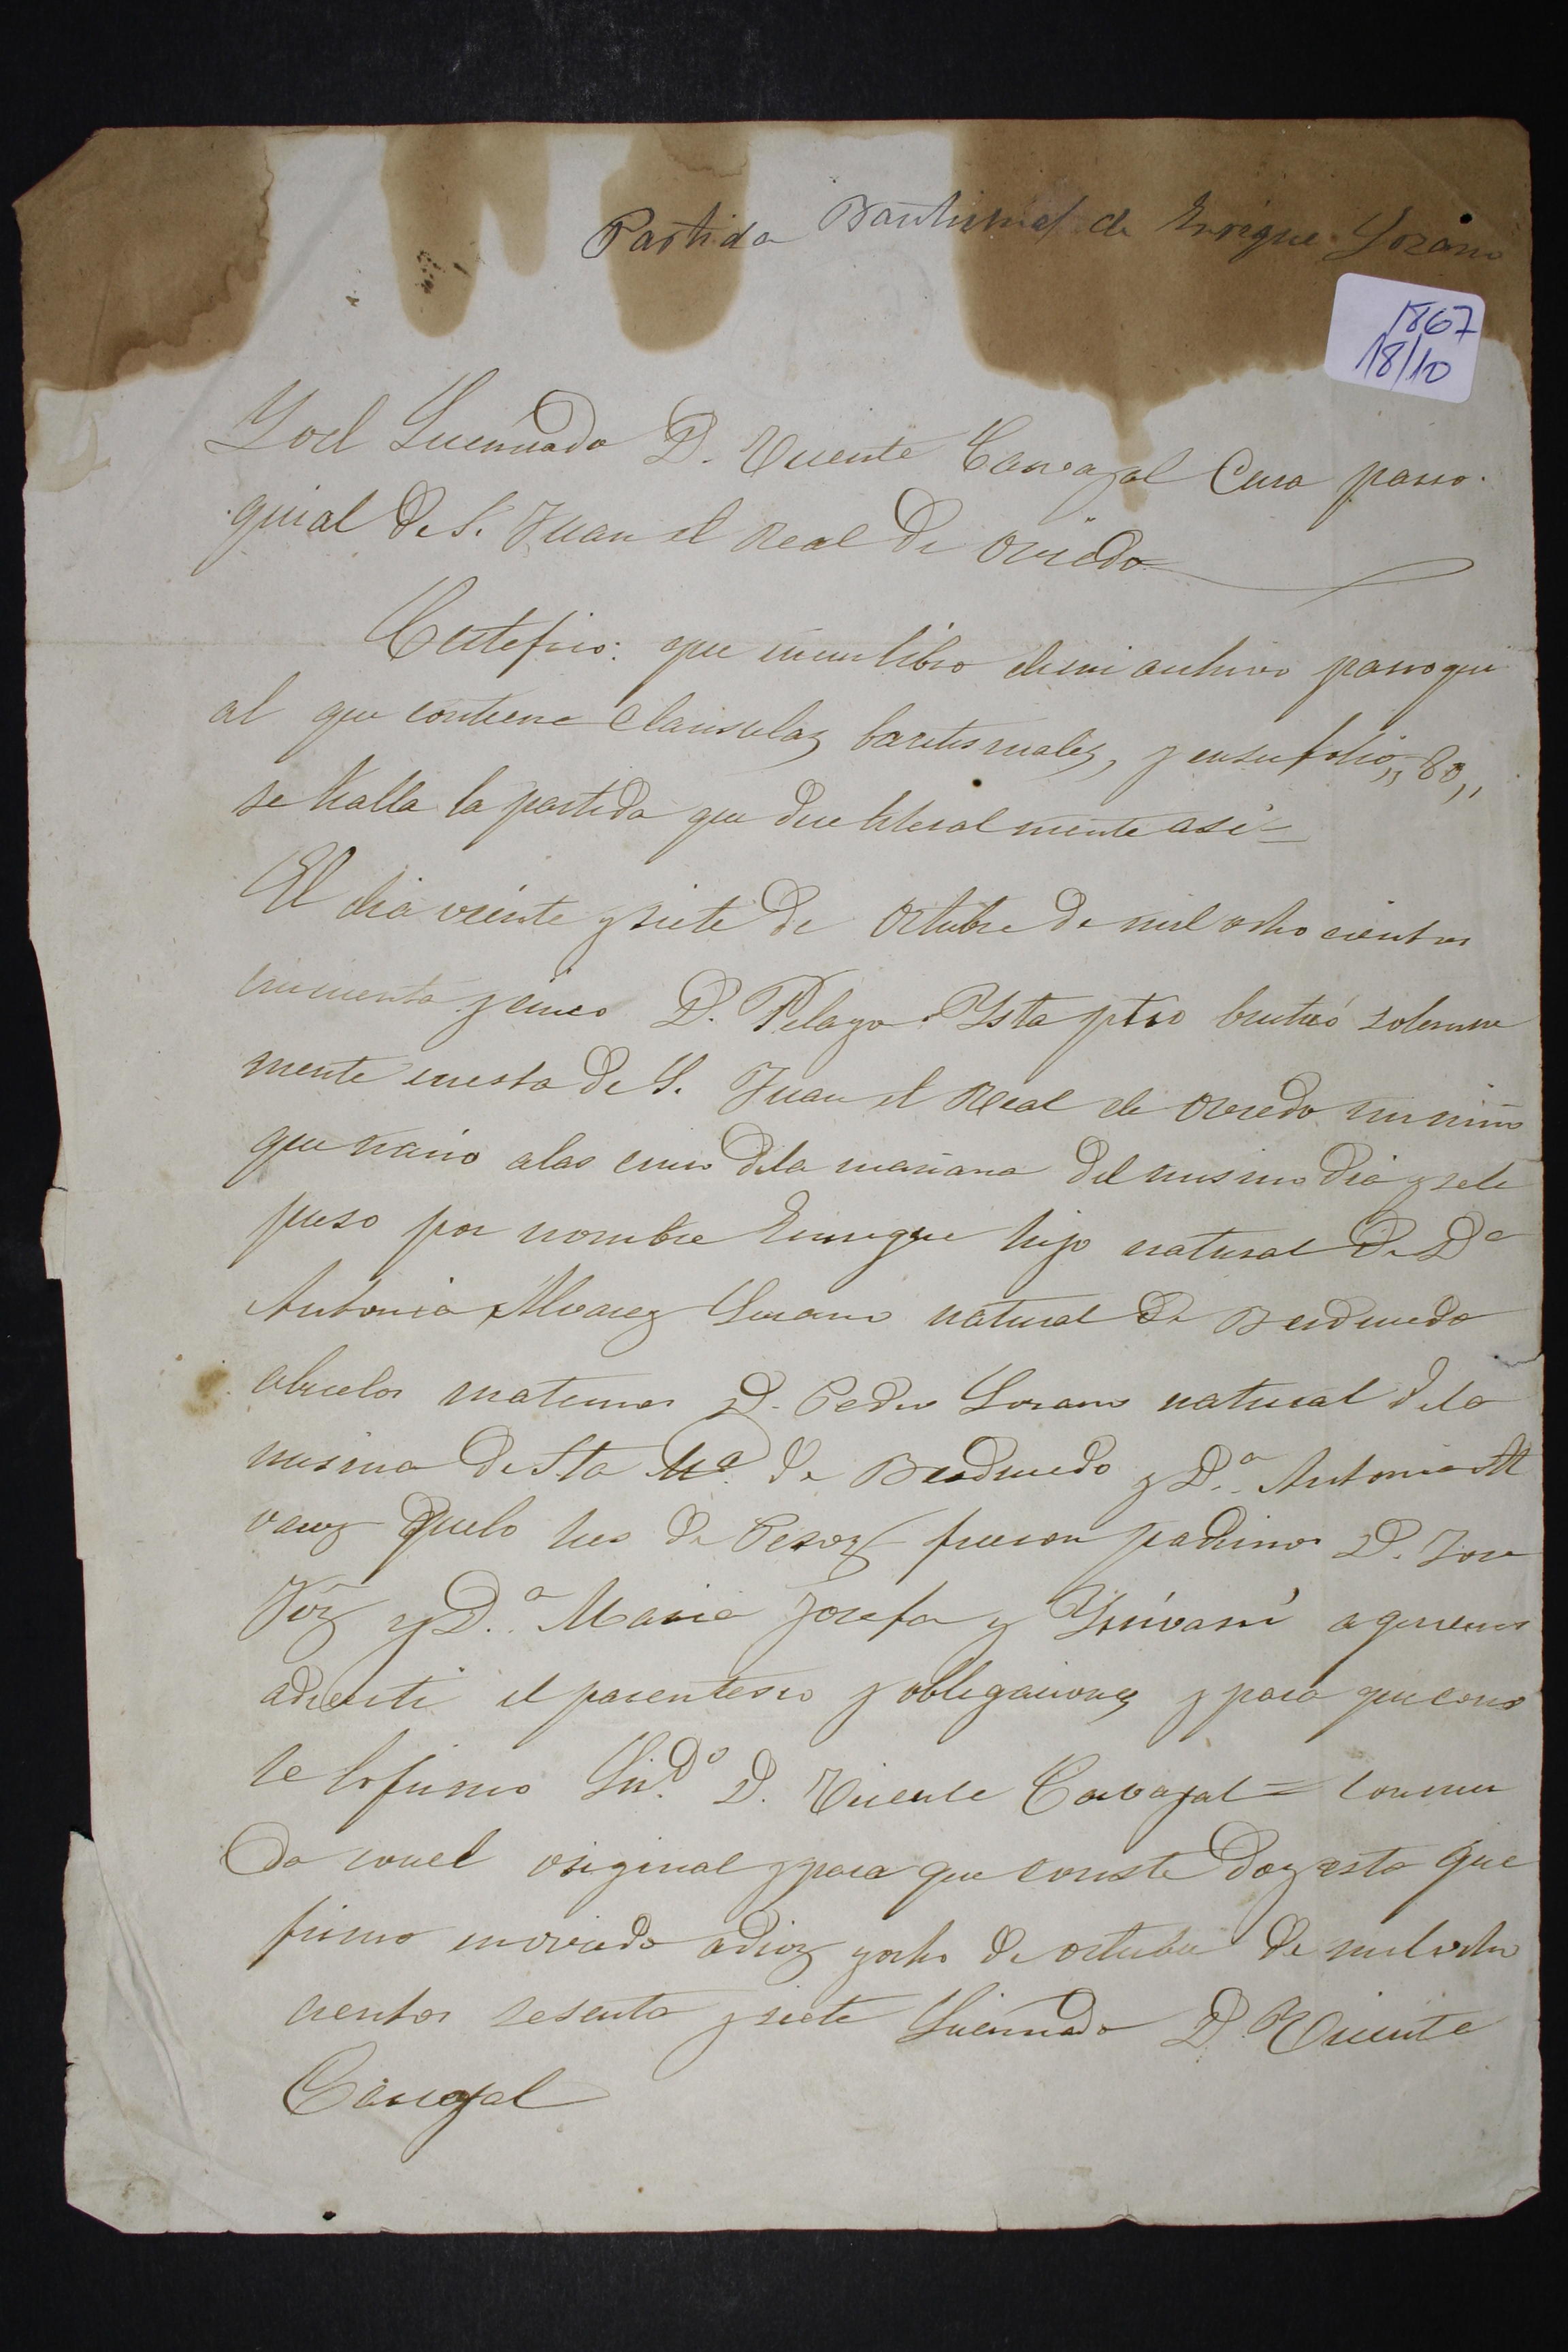 Partida Bautismal de Enrique Lozano
1867
18/10
Yo el Licenciado D. Vicente Carvajal Cura parro-
quial de S. Juan el Real de Oviedo
Certifico: que en un libro de mi archivo parroqui
al que contiene Clausulas bautismales, y en su folio,, 80,,
se halla la partida que dice literalmente asi=
El dia veinte y siete de Octubre de mil ocho cientos
cincuenta y cinco D. Pelayo Ysla pbro bautizó solemne
mente en esta de S. Juan el Real de Oviedo un niño
que nacio a las cinco de la mañana del mismo dia y se le
puso por nombre Enrrique hijo natural de Dª
Antonia Alvarez Lozano natural de Berducedo
abuelos maternos D. Pedro Lozano natural de la
misma de Sta Mª. de Berducedo y D.ª Antonia Al
varez de Pesoz fueron padrinos D. Jose
y D.ª Maria Josefa y a quienes
adverti el parentesco y obligaciones y para que cons
te lo firmo Lic.do D. Vicente Carvajal = Concuer
da con el original y para que conste doy esta que
firmo en oviedo a diez y ocho de octubre de mil ocho
cientos sesenta y siete Licenciado D. Vicente
Carvajal